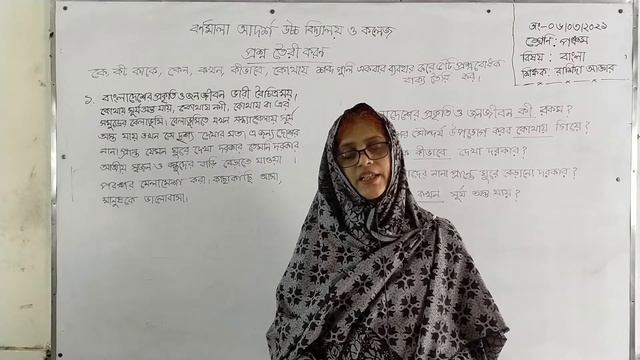 বর্ণমালা আদর্শ উচ্চ বিদ্যালয় ও কলেজ
প্রশ্ন তৈরী করণ
তাং-০৬/০৩/২০২১
শ্রেণি: পঞ্চম
বিষয় : বাংলা
শিক্ষক: রাশিদা আক্তার
কে, কী, কাকে, কেন, কখন, কীভাবে, কোথায় শব্দ গুলি একবার ব্যবহার করে ৫টি প্রশ্নবোধক
বাক্য তৈরি কর।
১. বাংলাদেশের প্রকৃতি ও জনজীবন ভারী বৈচিত্র্যময়।
কোথায়
সমুদ্রের বেলাভূমি। বেলাভূমিতে যখন সন্ধ্যাবেলায় সূর্য
অস্ত যায় তখন সে দৃশ্য দেখার মতো। এ জন্য দেশের
নানা প্রান্ত যেমন ঘুরে দেখা দরকার তেমনি দরকার
আত্মীয় স্বজন ও বন্ধুদের বাড়ি বেড়াতে যাওয়া ।
পরস্পর মেলামেশা করা। কাছাকাছি আসা,
মানুষকে ভালোবাসা।
প্রকৃতি ও জনজীবন কী রকম?
সৌন্দর্য উপভোগ করব কোথায় গিয়ে?
কীভাবে দেখা দরকার?
নানা প্রান্তে ঘুরে বেড়ানো দরকার?
কখন সূর্য অস্ত যায়?